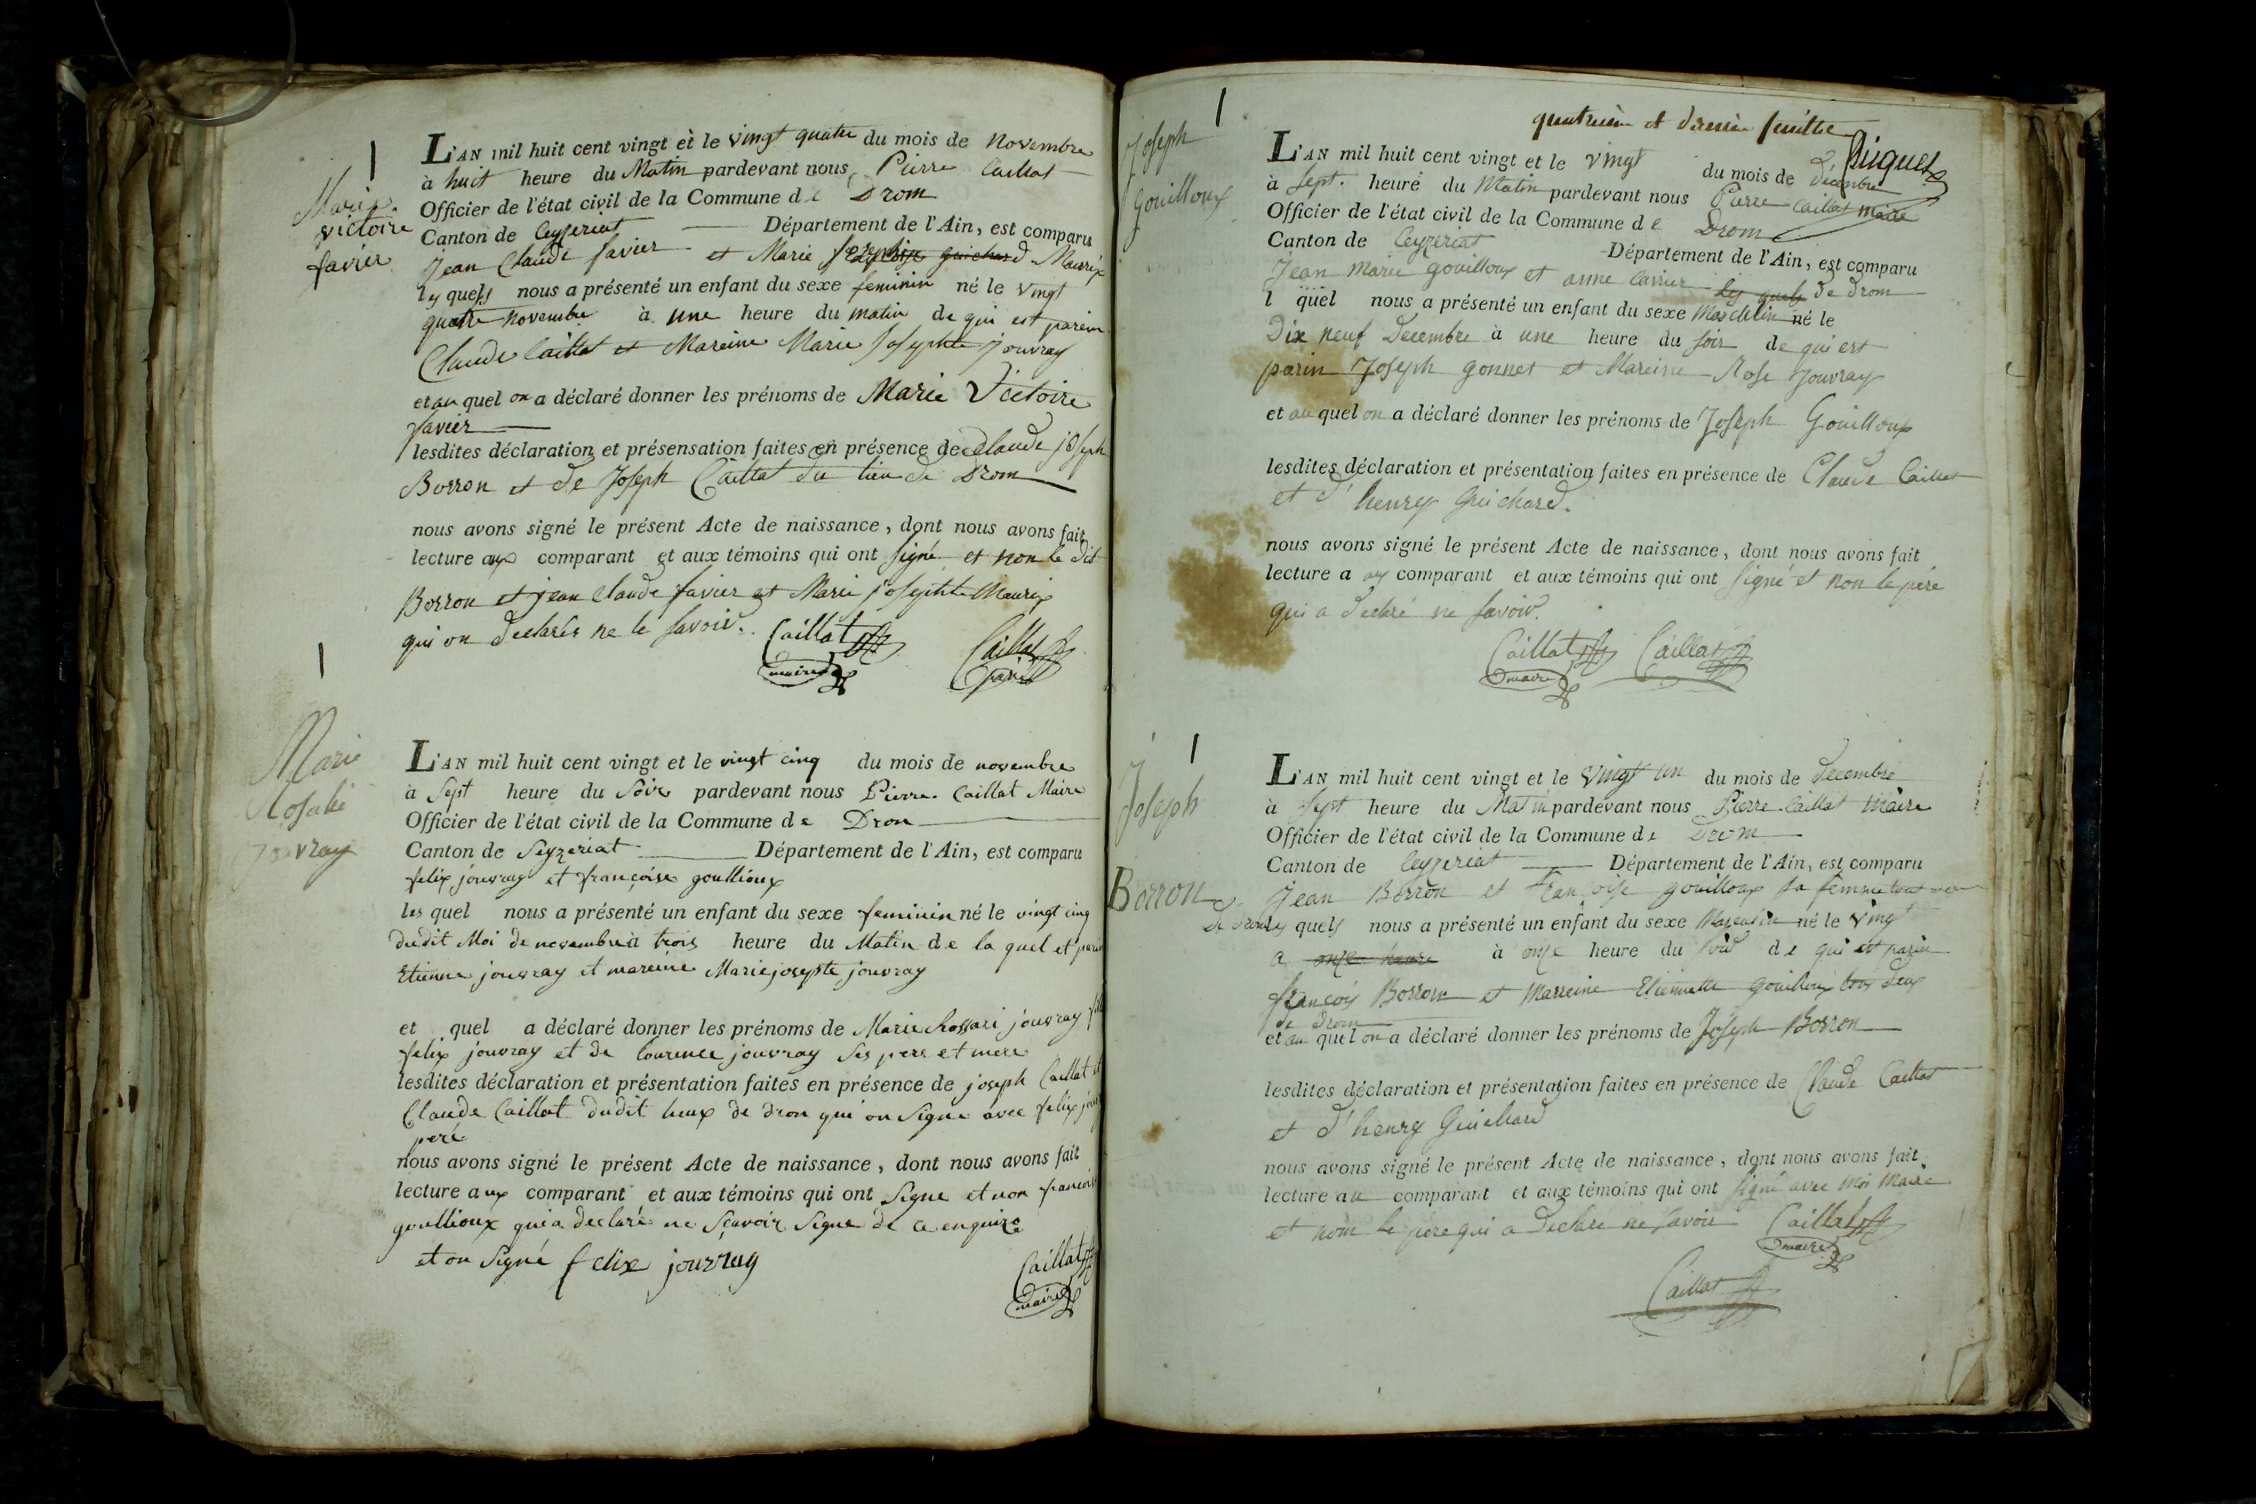 Marie
victoire
favier
L'AN mil huit cent vingt et le vingt quatre du mois de novembre
à huit heure du Matin pardevant nous Pierre Caillat
Officier de l'état civil de la Commune de Drom
Canton de Ceyzeriat Département de l'Ain, est comparu
Jean Claude favier et Marie Maurix
lesquels nous a présenté un enfant du sexe feminin né le vingt
quatre novembre à une heure du matin de qui est parein
Claude Caillat et Mareine Marie Josephte jouvray
et au quel on a déclaré donner les prénoms de Marie Victoire
favier
lesdites déclaration et présensation faites en présence de Claude joseph
Borron et de Joseph Caillat du lieu de Drom
nous avons signé le présent Acte de naissance, dont nous avons fait
lecture aux comparant et aux témoins qui ont signé et non le dit
Borron et jean Claude favier et Marie josephte Maurix
qui on declarés ne le savoir.
Caillat
maire
Caillat
Marie
Rosalie
jouvray
L'AN mil huit cent vingt et le vingt cinq du mois de novembre
à Sept heure du Soir pardevant nous Pierre Caillat Maire
Officier de l'état civil de la Commune de Dron
Canton de Seyzeriat Département de l'Ain, est comparu
felix jouvray et françoise goullioux
les quel nous a présenté un enfant du sexe feminin né le vingt cinq
dudit Moi de novembre à trois heure du Matin de la quel et
Etienne jouvray et mareine Marie josepte jouvray
et quel a déclaré donner les prénoms de Marie Rossari jouvray
felix jouvray et de Lourence jouvray Ses pere et mere
lesdites déclaration et présentation faites en présence de joseph Caillat et
Claude Caillat dudit lieux de dron qui on Signe avec felix
peré
nous avons signé le présent Acte de naissance, dont nous avons fait
lecture aux comparant et aux témoins qui ont Signe et non
goullioux qui a declaré ne Sçavoir Signe de ce enquire
et on Signé felix jouvray
Caillat
maire
quatrieme et derniere feuille
Joseph
Gouilloux
L'AN mil huit cent vingt et le vingt du mois de décembre
à Sept heure du Matin pardevant nous Pierre Caillat maire
Officier de l'état civil de la Commune de Drom
Canton de Ceyzeriat Département de l'Ain, est comparu
Jean Marie gouilloux et anne de Drom
l quel nous a présenté un enfant du sexe Masculin né le
Dix neuf Decembre à une heure du soir de qui est
parin Joseph gonnet et Mareine Rose Jouvray
et au quel on a déclaré donner les prénoms de Joseph Gouilloux
lesdites déclaration et présentation faites en présence de Claude Caillat
et d'henry Guichard.
nous avons signé le présent Acte de naissance, dont nous avons fait
lecture a ux comparant et aux témoins qui ont signé et non le père
qui a declaré ne savoir.
Caillat
maire
Caillat
Joseph
Borron
L'AN mil huit cent vingt et le vingt un du mois de decembre
à Sept heure du Matin pardevant nous Pierre Caillat maire
Officier de l'état civil de la Commune de Drom
Canton de Ceyzeriat Département de l'Ain, est comparu
Jean Borron et Françoise gouilloux sa femme
de Drom les quels nous a présenté un enfant du sexe Masculin né le vingt
a onze heure à onze heure du soir de qui est parin
françois Borron et Marreine Etiennette gouilloux tous deux
de Drom
et au quel on a déclaré donner les prénoms de Joseph Borron
lesdites déclaration et présentation faites en présence de Claude Caillat
et d'henry Guichard
nous avons signé le présent Acte de naissance, dont nous avons fait
lecture au comparant et aux témoins qui ont signé avec moi Maire
et nom le pere qui a declare ne savoir
Caillat
maire
Caillat